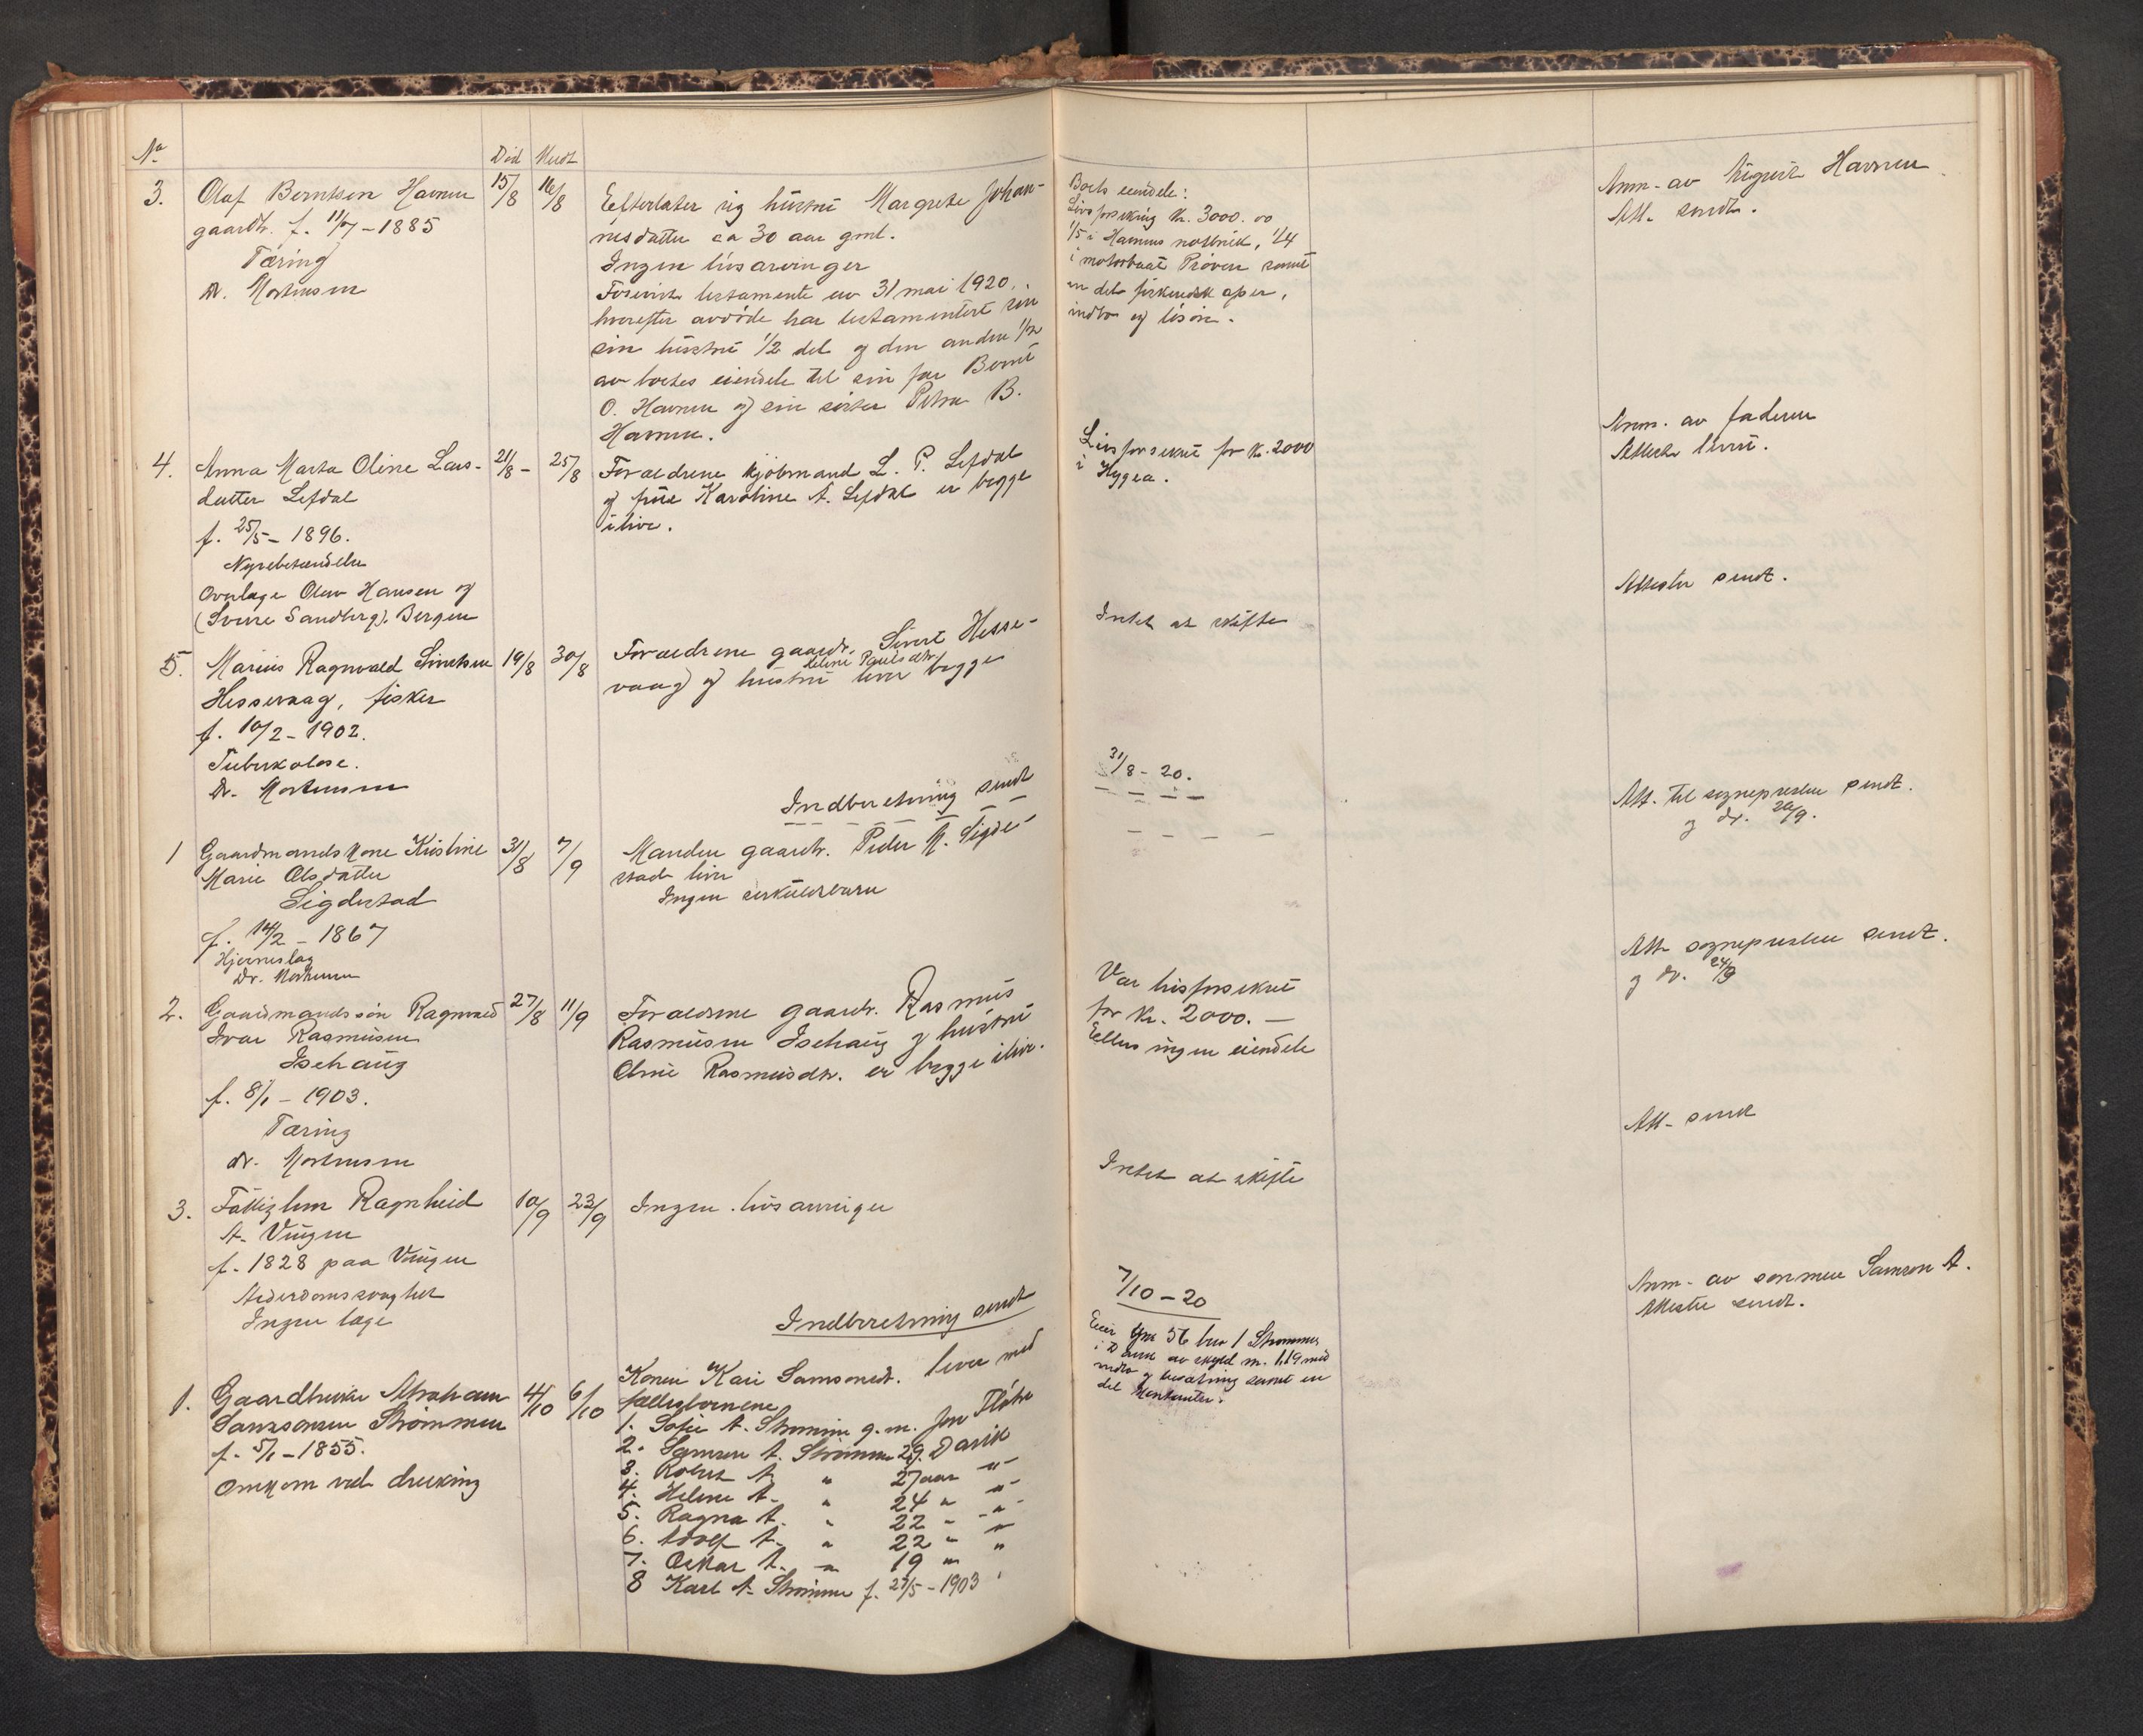 No
Död
Meldt
3.
Olaf Berntsen Havnen
gaardbr. f. 11/7 - 1885
Tæring
dr. Mortensen
15/8
16/8
Efterlater sig hustru Margrete Johan-
nesdatter ca 30 aar gml.
Ingen livsarvinger
testamente av 31 mai 1920,
hvorefter avdöde har testamentert sin
sin hustru 1/2 del og den andre 1/2
av boets eiendele til sin far Bernt
O. Havnen og sin söster Petra B.
Havnen.
Boets eiendele:
Livsforsikring kr. 3000.00
1/5 i Havnens notbruk, 1/4
i motorbaat Pröven samt
en del fiskeredskaper,
indbo og lösöre.
Anm. av Sigurd Havnen
Att. sendt.
4.
Anna Marta Oline Lars-
datter Lefdal
f. 25/5 - 1896.
Nyrebetændelse
Overlæge Olav Hansen og
(Sverre Sandberg). Bergen
21/8 -
25/8
Forældrene kjöbmand L. P. Lefdal
og frue Karoline A. Lefdal er begge
ilive.
Livsforsikret for kr. 2000
i Hygea.
Anm. av faderen
Attest levert.
5.
Marius Ragnvald Sivertsen
Hessevaag, fisker
f. 10/2 - 1902.
Tuberkolose.
Dr. Mortensen
19/8
30/8
Forældrene gaardbr. Sivert Hesse-
vaag og hustru Paulsdtr. lever begge
Intet at skifte
Attester sendt.
Indberetning sendt
31/8 - 20.
1
Gaardmandskone Kristine
Marie Olsdatter
Sigdestad
f. 14/2 - 1867
Hjerneslag
Dr. Mortensen
31/8
7/9
Manden gaardbr. Peder M. Sigde-
stad lever
Ingen særkuldsbarn
Att. til sognepresten sendt.
og dr. 20/9.
2.
Gaardmandssön Ragnvald
Ivar Rasmussen
Isehaug
f. 8/1 - 1903.
Tæring
dr. Mortensen
27/8
11/9
Forældrene gaardbr. Rasmus
Rasmussen Isehaug og hustru
Rasmusdtr. er begge ilive.
Var livsforsikret
for kr. 2000. -
Ellers ingen eiendele
Att. sognepresten sendt.
og dr. 24/9
3.
Fattiglem Ragnheid
A. Vingen
f. 1828 paa Vingen
Alderdomssvaghet
Ingen læge
10/9
23/9
Ingen livsarvinger
Intet at skifte
Att. sendt
Indberetning sendt
7/10 - 20
1.
Gaardbruker Abraham
Samsonsen Strömmen
f. 5/1 - 1855.
Omkom ved drukning
4/10
6/10
Konen Kari Samsonsdt. lever med
fællesbörnene
1. Sofie A. Strömmen g. m. Jon Flöt
2. Samson A. Strömmen 29. Davik
3. Robert A. " 27 aar "
4. Helene A. " 24 " "
5. Ragna A. " 22 - "
6. Adolf A. " 22 " "
7. Oskar A. " 19 " "
8 Karl A. Strömmen f. 27/5 - 1903 "
Eier gnr 56 bnr 1 Strömmen
i Davik av skyld m. 1.19 med
indbo og besætning samt en
del kontanter.
Anm. av sönnen Samson A.
Attester sendt.